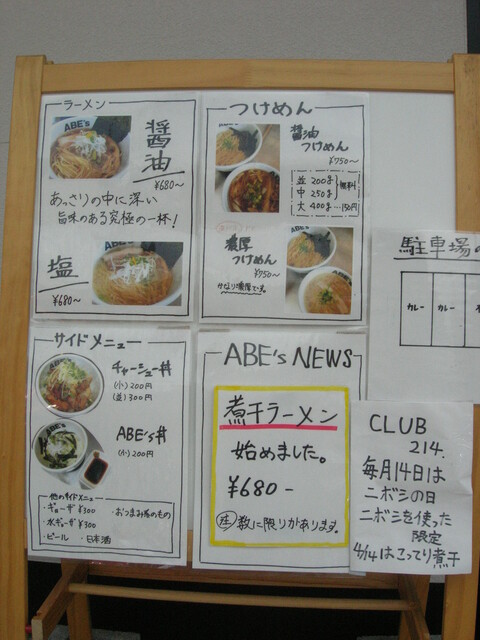 ラーメン
ABE's
醤油
¥680～
あっさりの中に深い
旨味のある究極の一杯!
塩
¥680～
つけめん
醤油
つけめん
¥750～
並 200g
中 250g
無料
大 400g…150円
濃厚
つけめん
¥750～
かなり濃厚です。
サイドメニュー
チャーシュー丼
(小) 200円
(並) 300円
ABE's丼
(小) 200円
他のサイドメニュー
・ギョーザ ¥300
・おつまみ系のもの
・水ギョーザ ¥300
・ビール
・日本酒
ABE's NEWS
煮干ラーメン
始めました。
¥680-
注 数に限りがあります。
駐車場の
カレー
カレー
CLUB
214.
毎月14日は
ニボシの日
ニボシを使った
限定
4/14はこってり煮干